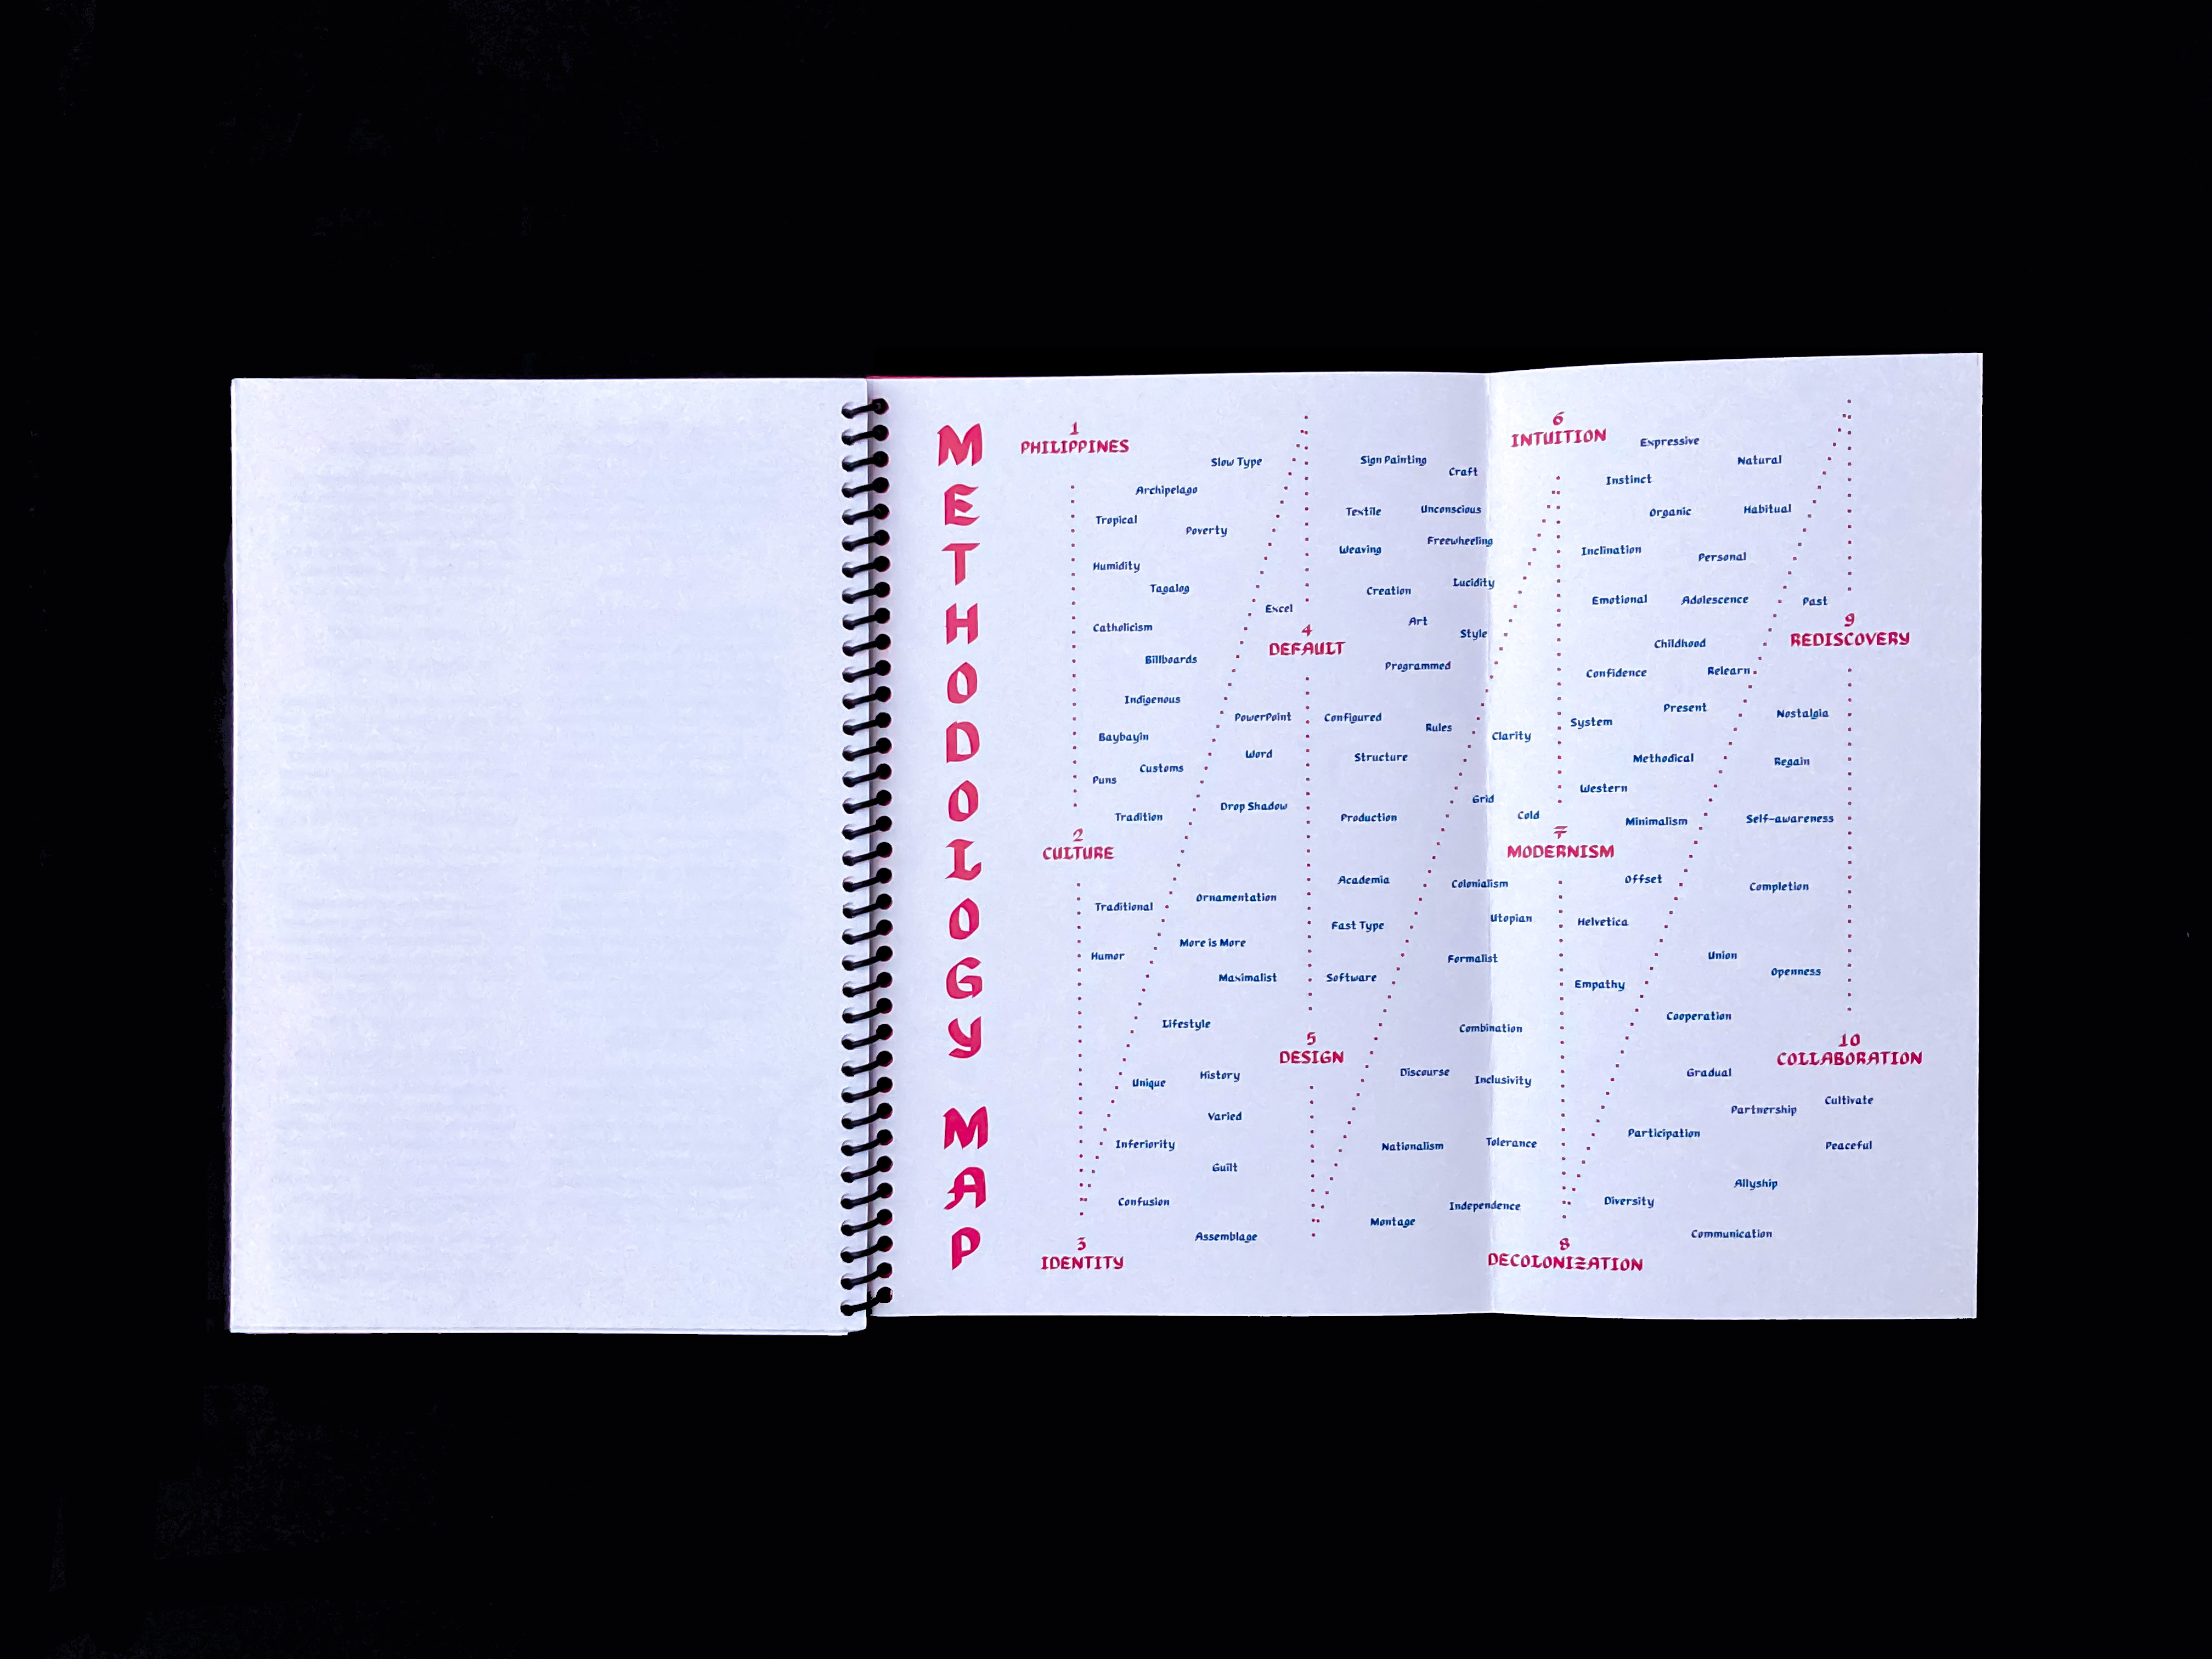 METHODOLOGY MAP
1
PHILIPPINES
Slow Type
Archipelago
Tropical
Poverty
Humidity
Tagalog
Catholicism
Billboards
Indigenous
Baybayin
Customs
Puns
Tradition
2
CULTURE
Traditional
Humor
Ornamentation
More is More
Maximalist
Lifestyle
Unique
History
Varied
Inferiority
Guilt
Confusion
Assemblage
3
IDENTITY
Excel
4
DEFAULT
PowerPoint
Word
Drop Shadow
Sign Painting
Craft
Textile
Unconscious
Weaving
Freewheeling
Creation
Lucidity
Art
Style
Programmed
Configured
Rules
Structure
Production
Academia
Fast Type
Software
5
DESIGN
Grid
Clarity
Cold
Colonialism
Utopian
Formalist
Combination
Discourse
Inclusivity
Nationalism
Tolerance
Independence
Montage
6
INTUITION
Expressive
Natural
Instinct
Organic
Habitual
Inclination
Personal
Emotional
Adolescence
Past
Childhood
Confidence
Relearn
Present
System
Methodical
Western
Minimalism
7
MODERNISM
Offset
Helvetica
Empathy
8
DECOLONIZATION
9
REDISCOVERY
Nostalgia
Regain
Self-awareness
Completion
Union
Openness
Cooperation
10
COLLABORATION
Gradual
Cultivate
Partnership
Participation
Peaceful
Allyship
Diversity
Communication